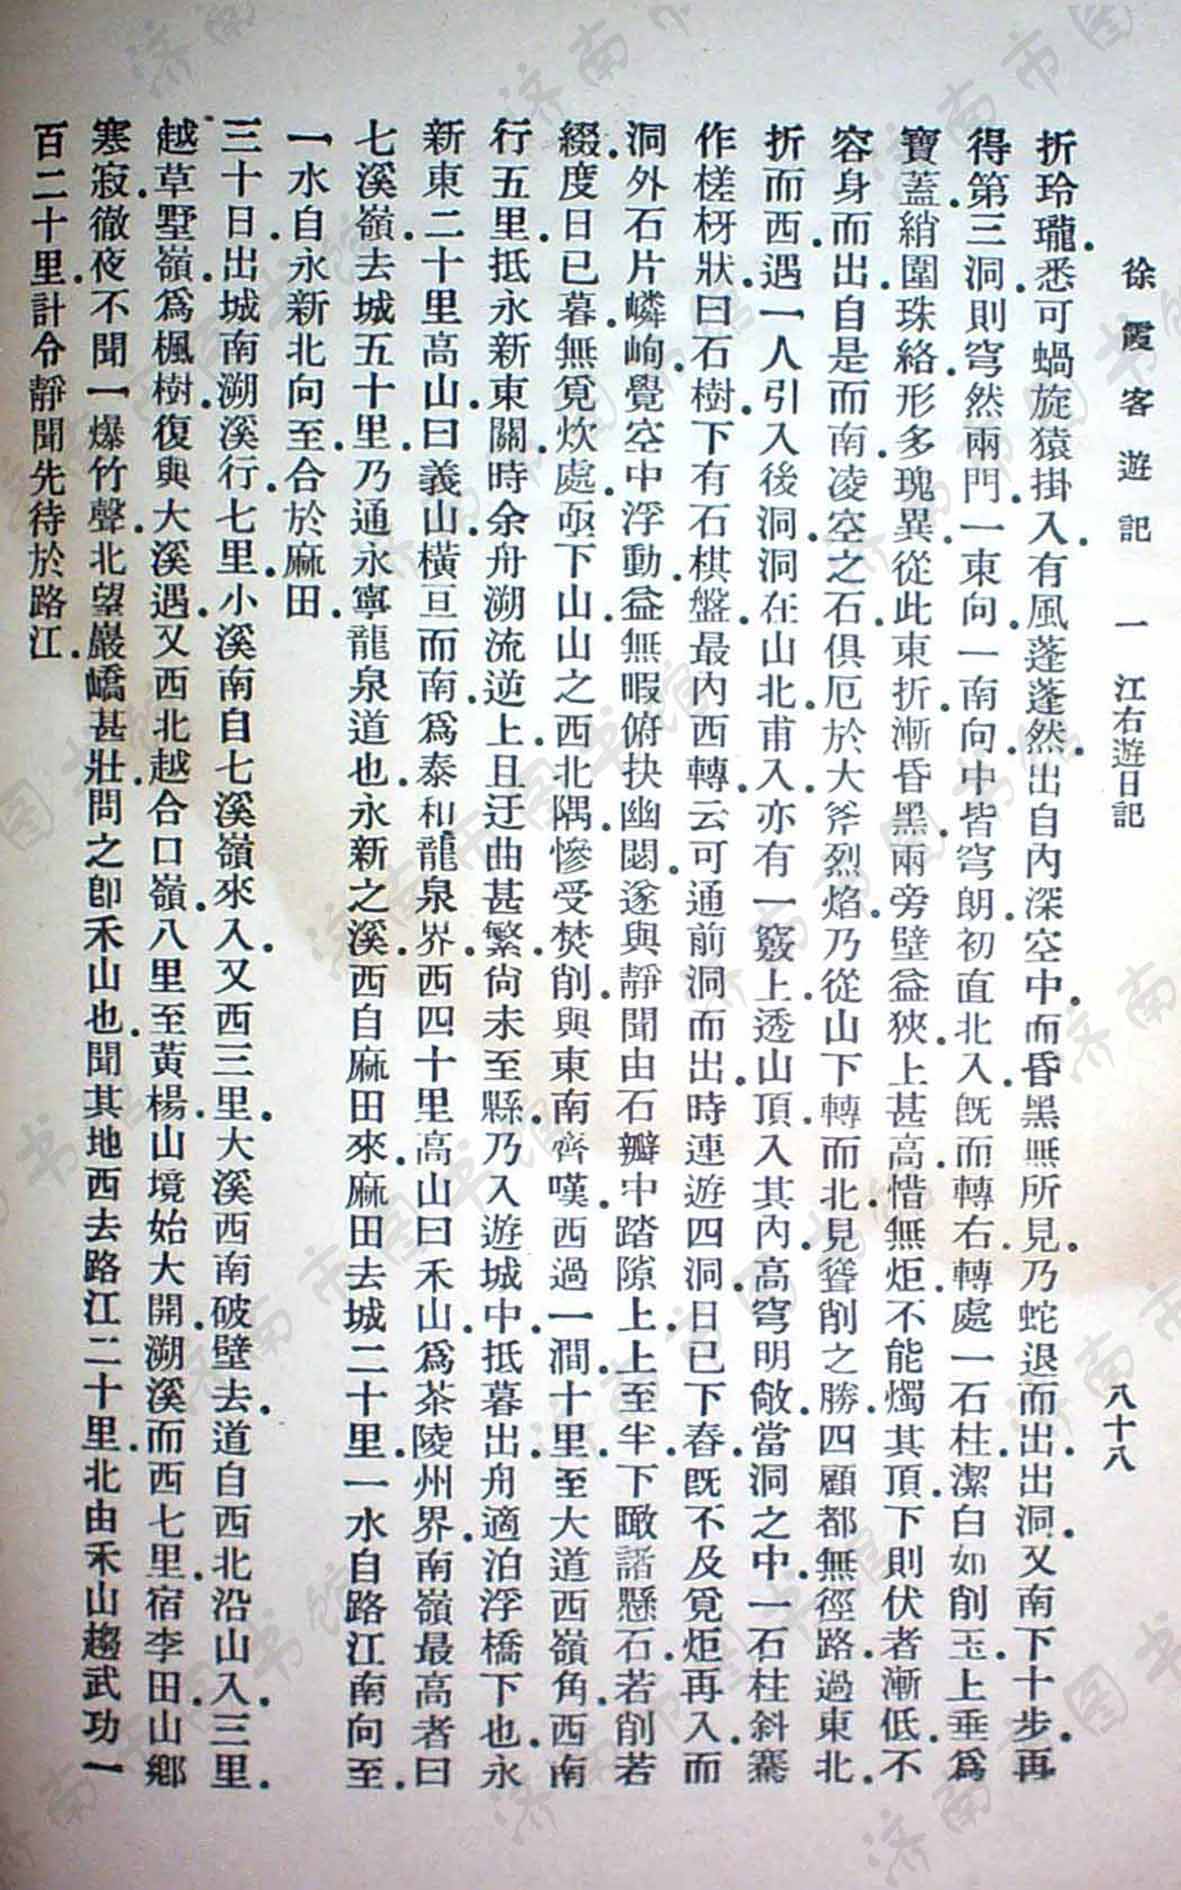 徐霞客遊記 一 江右遊日記 八十八
折玲瓏.悉可蝸旋猿掛.入有風蓬蓬然.出自內深空中.而昏黑無所見.乃蛇退而出.出洞.又南下十步.再
得第三洞.則穹然兩門.一東向.一南向.中皆穹朗.初直北入.既而轉右.轉處一石柱.潔白如削玉.上垂為
寶蓋.綃圍珠絡.形多瑰異.從此東折.漸昏黑.兩旁壁益狹.上甚高.惜無炬.不能燭其頂.下則伏者漸低.不
容身而出.自是而南.凌空之石.俱厄於大斧烈焰.乃從山下轉而北.見聳削之勝.四顧都無徑路.過東北.
折而西.遇一人引入後洞.洞在山北.甫入.亦有一竅上透山頂.入其內.高穹明敞.當洞之中.一石柱斜騫.
作槎枒狀.曰石樹.下有石棋盤.最內西轉.云可通前洞而出.時連遊四洞.日已下舂.既不及覓炬再入.而
洞外石片嶙峋.覺空中浮動.益無暇俯抉幽閟.遂與靜聞由石瓣中踏隙上.上至半.下瞰諸懸石.若削若
綴.度日已暮.無覓炊處.亟下山.山之西北隅.慘受焚削.與東南齊嘆.西過一澗.十里.至大道西嶺角.西南
行五里.抵永新東關.時余舟溯流逆上.且迂曲甚繁.尙未至縣.乃入遊城中.抵暮出.舟適泊浮橋下也.永
新東二十里高山.曰義山.橫亘而南.爲泰和龍泉界.西四十里高山曰禾山.爲茶陵州界.南嶺最高者曰
七溪嶺.去城五十里.乃通永寧龍泉道也.永新之溪.西自麻田來.麻田去城二十里.一水自路江南向至.
一水自永新北向至.合於麻田.
三十日.出城南.溯溪行.七里.小溪南自七溪嶺來入.又西三里.大溪西南破壁去.道自西北沿山入.三里.
越草墅嶺.爲楓樹.復與大溪遇.又西北越合口嶺.八里至黃楊.山境始大開.溯溪而西.七里.宿李田.山鄉
寒寂.徹夜不聞一爆竹聲.北望巖嶠甚壯.問之卽禾山也.聞其地西去路江二十里.北由禾山趨武功一
百二十里.計令靜聞先待於路江.